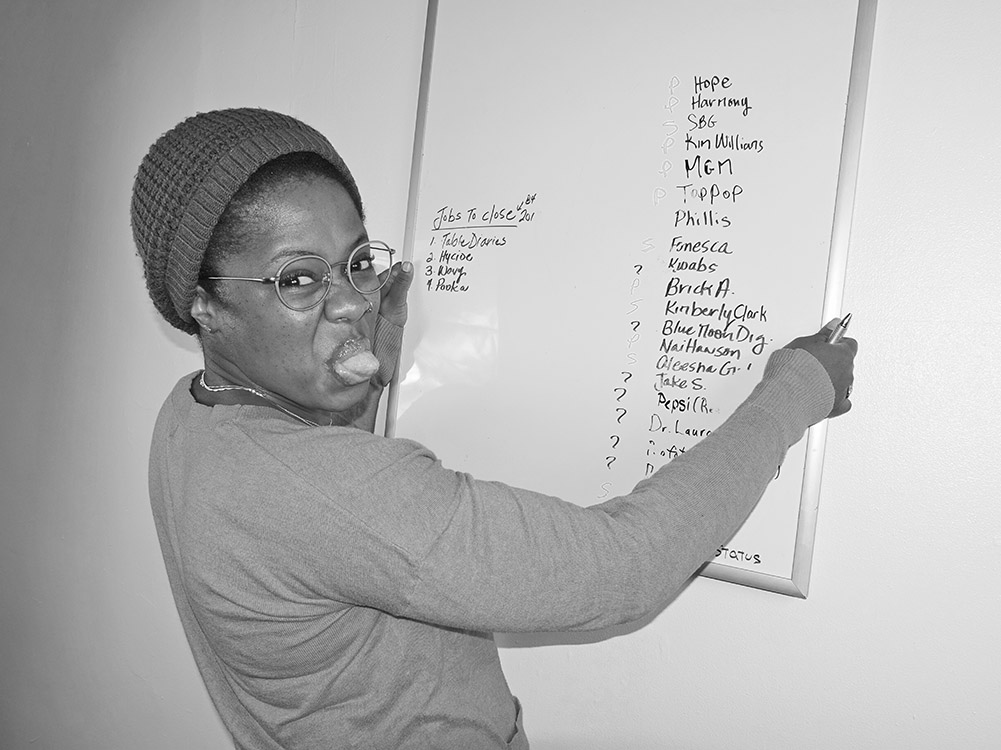 Jobs To close B4 201
1. Table Diaries
2. Hycide
3. Wavy
4. Pooka
P Hope
P Harmony
S SBG
P Kim Williams
P MGM
P TopPop
Phillis
S Fonesca
? Kwabs
P Brick A.
S Kimberly Clark
? Blue Moon Dig.
S Nai Hawson
S Aleesha Gr
? Jake S.
? Pepsi (R
? Dr. Laur
?
?
S
status